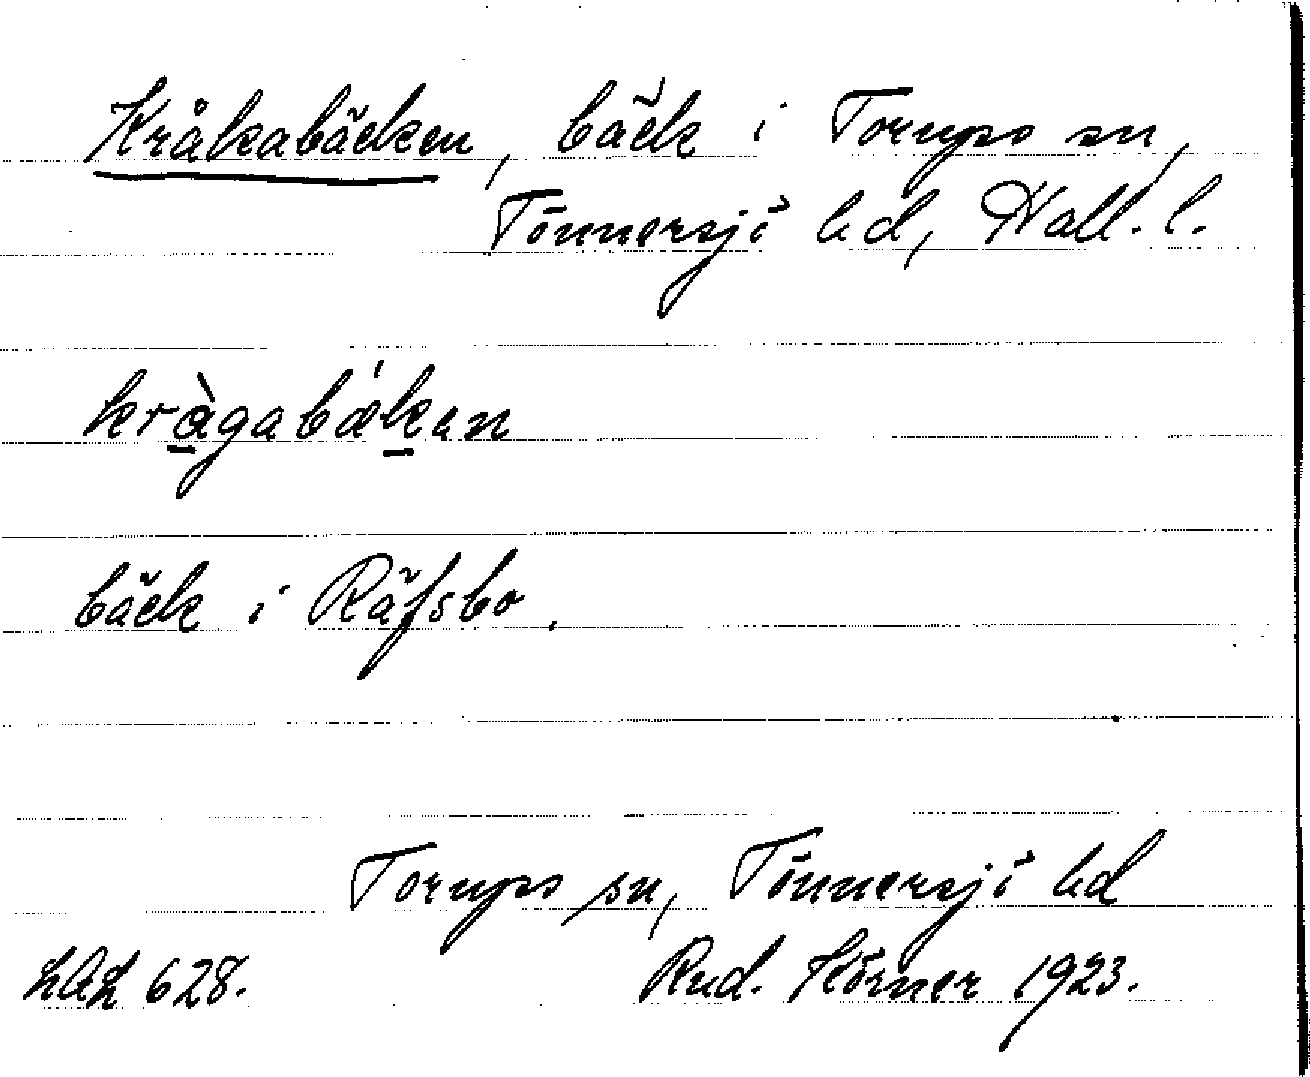 Kråkabäcken, bäck i Torups sn,
Tönnersjö hd, Hall. l.
kràgabǽkan
bäck i Räfsbo.
Torups sn, Tönnersjö hd
LAL 628. Rud. Hörner 1923.